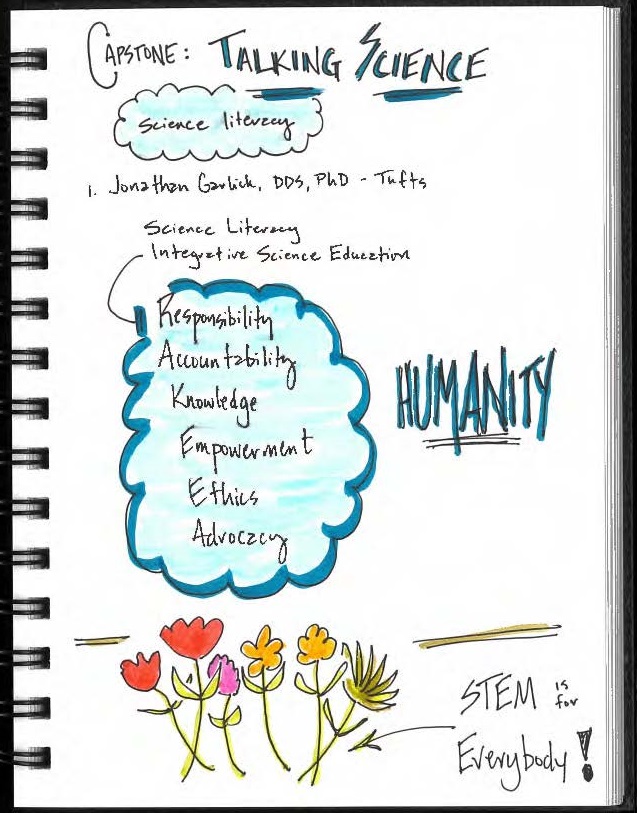 CAPSTONE: TALKING SCIENCE
science literacy
1. Jonathan Garlick, DDS, PhD - Tufts
Science Literacy
Integrative Science Education
Responsibility
Accountability
Knowledge
Empowerment
Ethics
Advocacy
HUMANITY
STEM is for
Everybody!